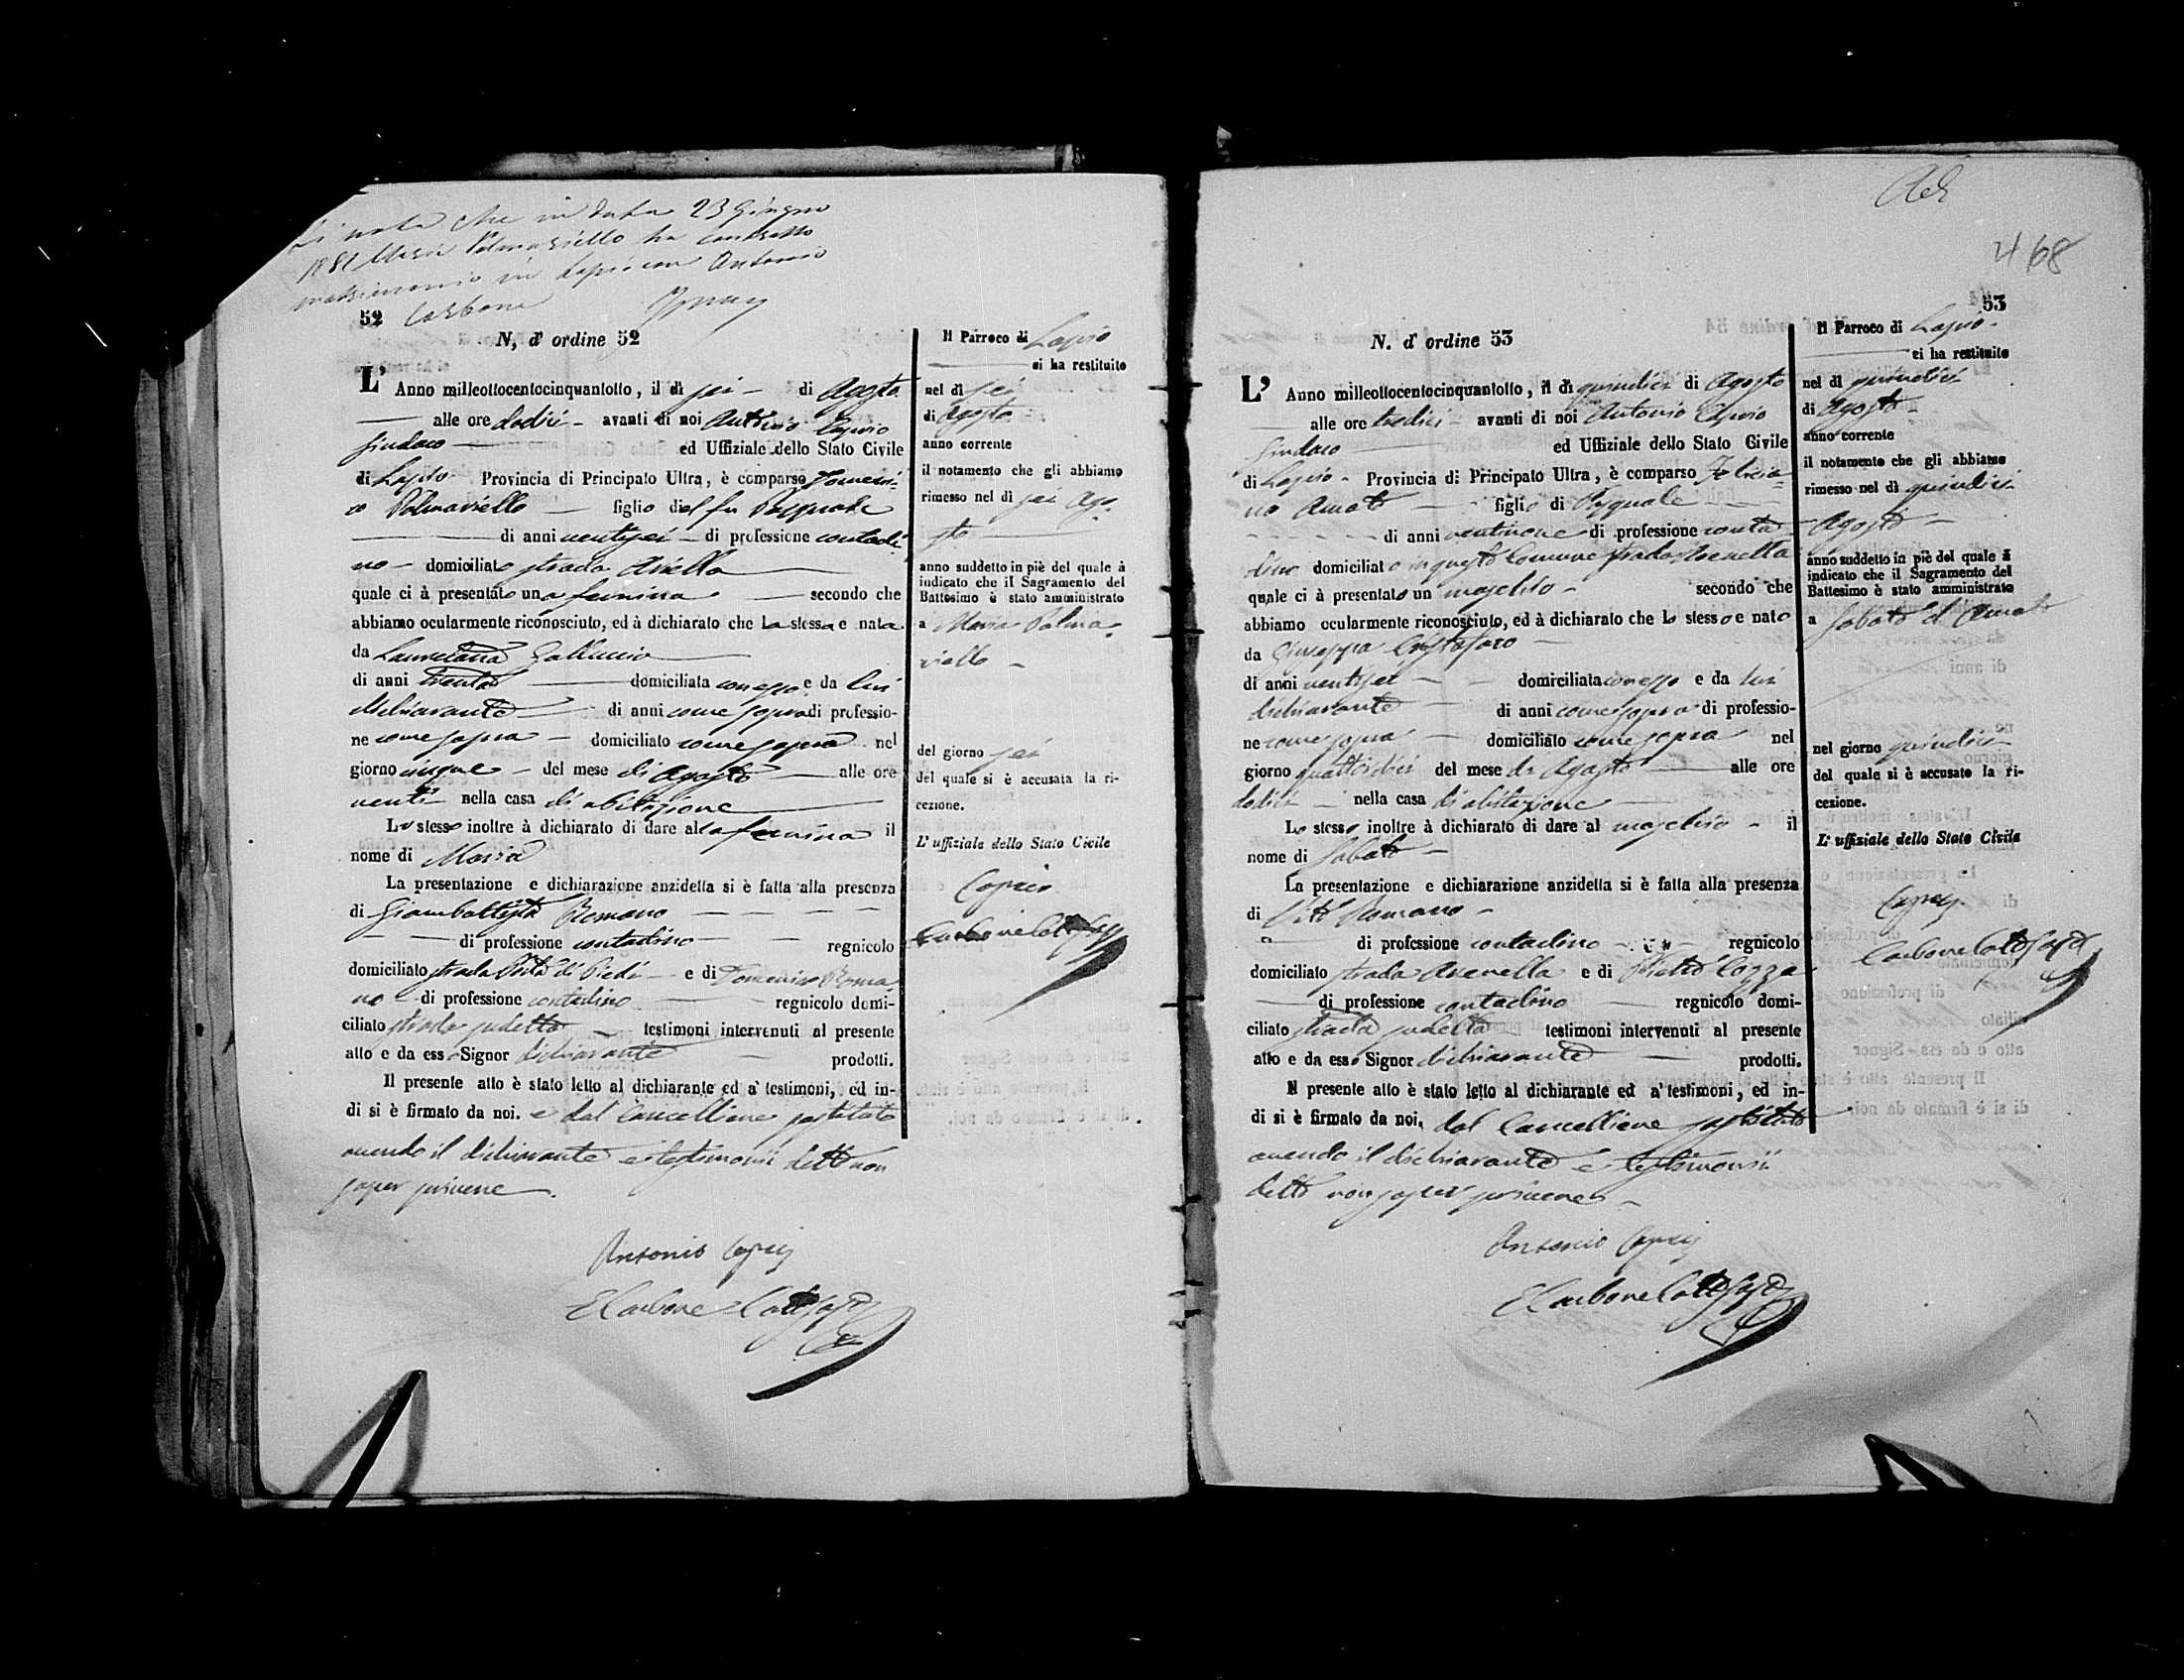 Si nota che in data 23 Giugno
1881 Maria Palmariello ha contratto
matrimonio in Lapio con Antonio
Carbone
52
N, d' ordine 52
L' Anno milleottocentocinquantotto, il dì sei di Agosto
alle ore dodici avanti di noi Antonio Caprio
Sindaco ed Uffiziale dello Stato Civile
di Lapio Provincia di Principato Ultra, è comparso Domeni-
co Palmariello figlio del fu Pasquale
di anni ventisei di professione contadi-
no domiciliato strada Ariella
quale ci à presentato una femina secondo che
abbiamo ocularmente riconosciuto, ed à dichiarato che La stessa e nata
da Galluccio
di anni trenta domiciliata con esso e da lui
dichiarante di anni come sopra di professio-
ne come sopra domiciliato come sopra nel
giorno cinque del mese di Agosto alle ore
venti nella casa di abitazione
Lo stesso inoltre à dichiarato di dare alla femina il
nome di Maria
La presentazione e dichiarazione anzidetta si è fatta alla presenza
di Giambattista Romano
di professione contadino regnicolo
domiciliato strada di Piedi e di Domenico Roma-
no di professione contadino regnicolo domi-
ciliato strada sudetta testimoni intervenuti al presente
atto e da esso Signor dichiarante prodotti.
Il presente atto è stato letto al dichiarante ed a' testimoni, ed in-
di si è firmato da noi. e dal Cancelliere sostituto
avendo il dichiarante e testimonii detto non
saper scrivere.
Antonio Caprio
E Carbone
Il Parroco di Lapio
ci ha restituito
nel dì sei
di Agosto
anno corrente
il notamento che gli abbiamo
rimesso nel dì sei Ago-
sto
anno suddetto in piè del quale à
indicato che il Sagramento del
Battesimo è stato amministrato
a Maria Palma-
riello
del giorno sei
del quale si è accusata la ri-
cezione.
L' uffiziale dello Stato Civile
Caprio
Carbone
468
53
N. d' ordine 53
L' Anno milleottocentocinquantotto, il dì quindici di Agosto
alle ore tredici avanti di noi Antonio Caprio
Sindaco ed Uffiziale dello Stato Civile
di Lapio Provincia di Principato Ultra, è comparso Felicia-
no Amato figlio di Pasquale
di anni ventinove di professione conta-
dino domiciliato in questo Comune strada Arenella
quale ci à presentato un maschio secondo che
abbiamo ocularmente riconosciuto, ed à dichiarato che Lo stesso e nato
da Giuseppa Cristofaro
di anni ventisei domiciliata con esso e da lui
dichiarante di anni come sopra di professio-
ne come sopra domiciliato come sopra nel
giorno quattordici del mese di Agosto alle ore
dodici nella casa di abitazione
Lo stesso inoltre à dichiarato di dare al maschio il
nome di Sabato
La presentazione e dichiarazione anzidetta si è fatta alla presenza
di Vito Romano
di professione contadino regnicolo
domiciliato strada Arenella e di Pietro Cozza
di professione contadino regnicolo domi-
ciliato strada sudetta testimoni intervenuti al presente
atto e da esso Signor dichiarante prodotti.
Il presente atto è stato letto al dichiarante ed a' testimoni, ed in-
di si è firmato da noi, dal Cancelliere sostituto
avendo il dichiarante e testimonii
detto non saper scrivere
Antonio Caprio
E Carbone
Il Parroco di Lapio
ci ha restituito
nel dì quindici
di Agosto
anno corrente
il notamento che gli abbiamo
rimesso nel dì quindici
Agosto
anno suddetto in piè del quale à
indicato che il Sagramento del
Battesimo è stato amministrato
a Sabato d' Amato
nel giorno quindici
del quale si è accusato la ri-
cezione.
L' uffiziale dello Stato Civile
Caprio
Carbone